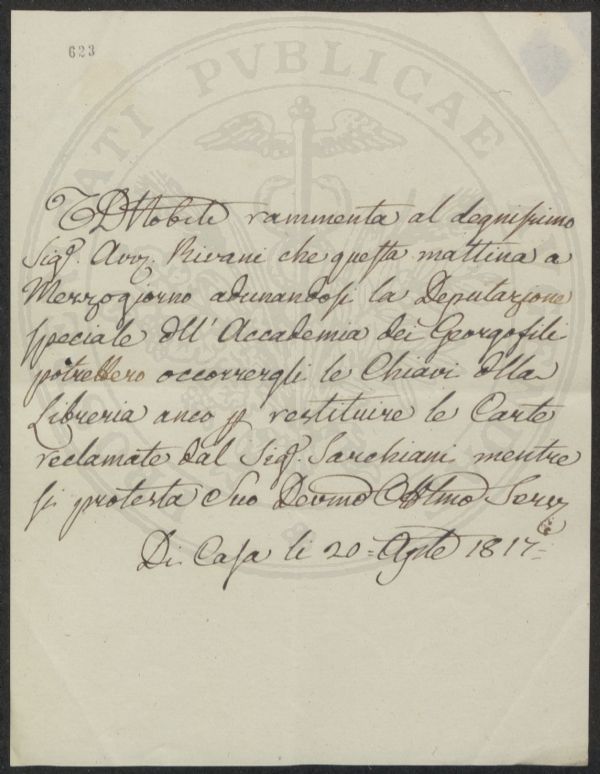 623
PVBLICAE
T D Nobili rammenta al degnissimo
Sigr. Avv. Rivani che questa mattina a
Mezzogiorno adunandosi la Deputazione
speciale dll' Accademia dei Georgofili
potrebbero occorrergli le Chiavi dlla
Libreria anco p restituire le Carte
reclamate dal Sigr. Sarchiani mentre
si protesta Suo Devmo Obblmo Serv
Di Casa li 20 = Agto 1817 =